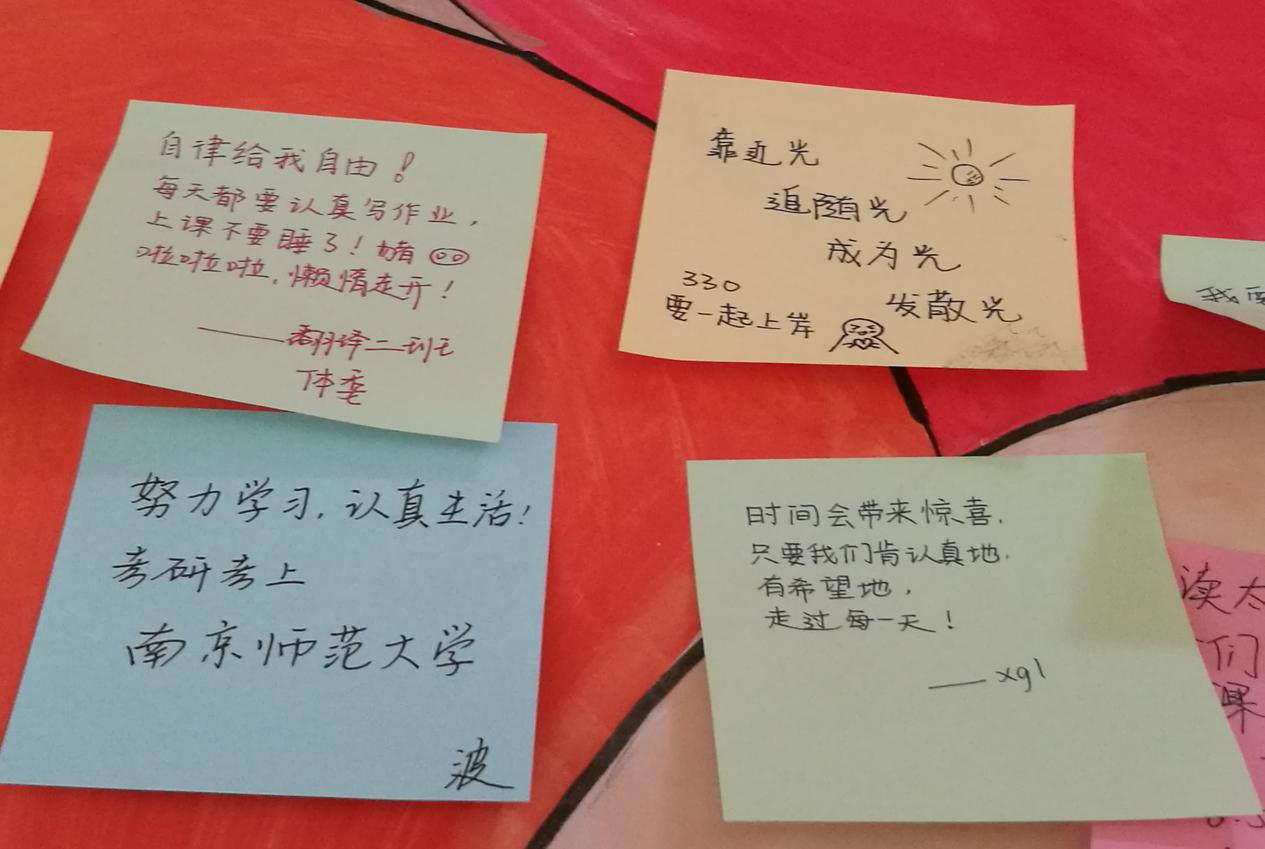 自律给我自由！
每天都要认真写作业，
上课不要睡了！
啦啦啦，懒惰走开！
——翻译二班
体委
靠近光
追随光
成为光
发散光
330
要一起上岸
努力学习，认真生活！
考研考上
南京师范大学
波
时间会带来惊喜，
只要我们肯认真地，
有希望地，
走过每一天！
——xgl
我
读太
们
课